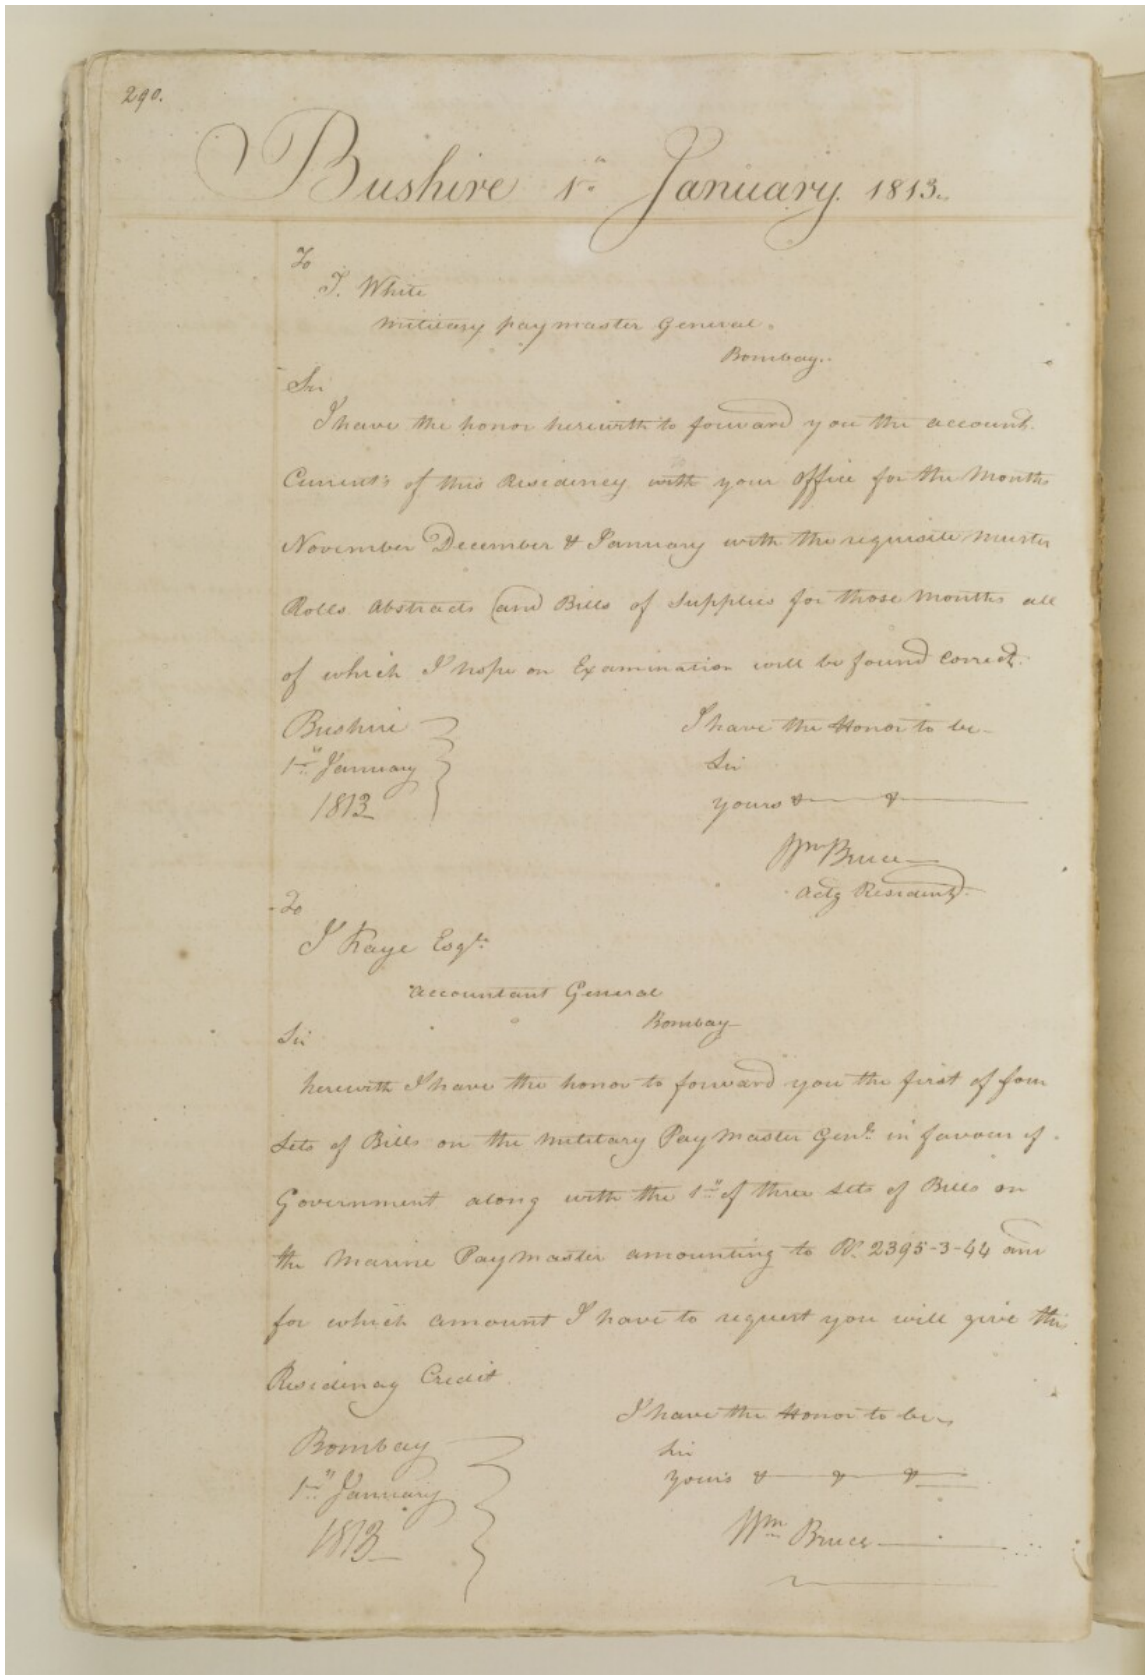 290.
Bushire 1st January. 1813.
To
J. White
Military paymaster General.
Bombay.
Sir
I have the honor herewith to forward you the account
Current's of this Residency with your office for the Months
November December & January with the requisite Muster
Rolls Abstracts and Bills of Supplies for those Months all
of which I hope on Examination will be found correct.
Bushire
1st January
1813
I have the Honor to be
Sir
yours & &
Wm Bruce
Actg Resident.
To
J Kaye Esqr
Accountant General
Bombay
Sir
herewith I have the honor to forward you the first of four
Sets of Bills on the Military Pay Master Genl. in favour of
Government along with the 1st of three sets of Bills on
the Marine Paymaster amounting to Rs. 2395-3-44 and
for which amount I have to request you will give this
Residency Credit
Bombay
1st January
1813
I have the Honor to be
Sir
yours & & &
Wm Bruce